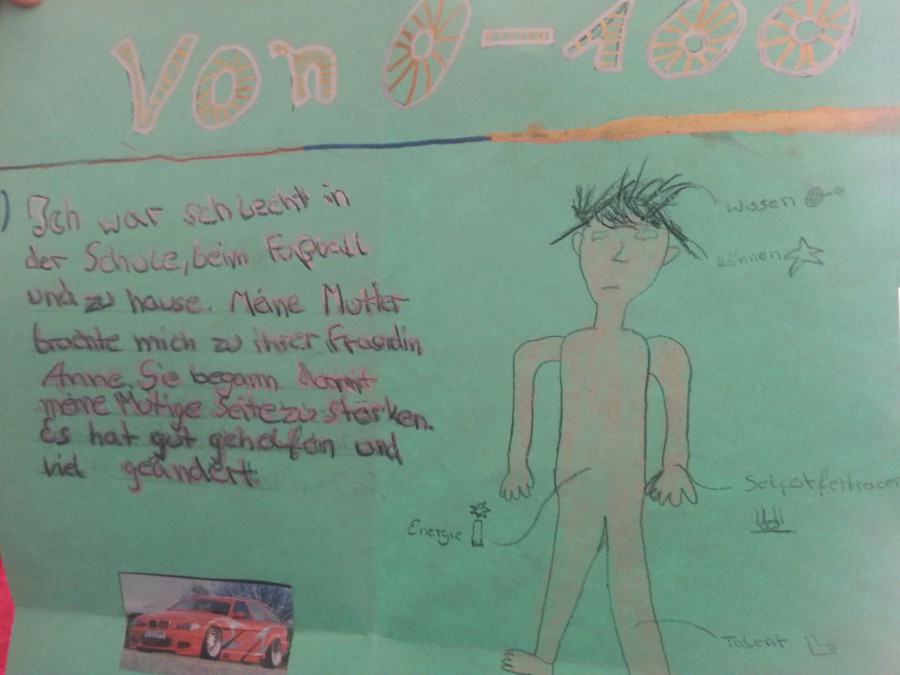 Von 0-100
Ich war schlecht in
der Schule, beim Fußball
und zu hause. Meine Mutter
brachte mich zu ihrer Freundin
Anne. Sie begann damit
meine Mutige Seite zu sterken.
Es hat gut geholfen und
viel geändert.
Wissen
können
Selpstfertrauen
Energie
Talent